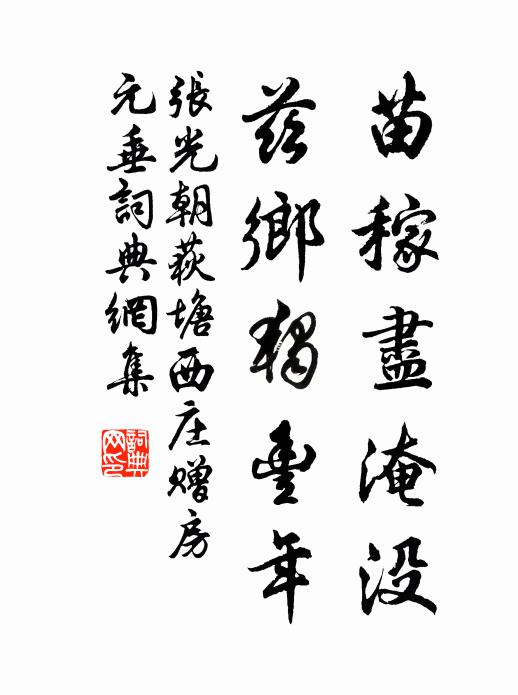 苗稼盡淹没
兹鄉獨豐年
張光朝荻塘西庄赠房
元垂詞典網集
詞典网印